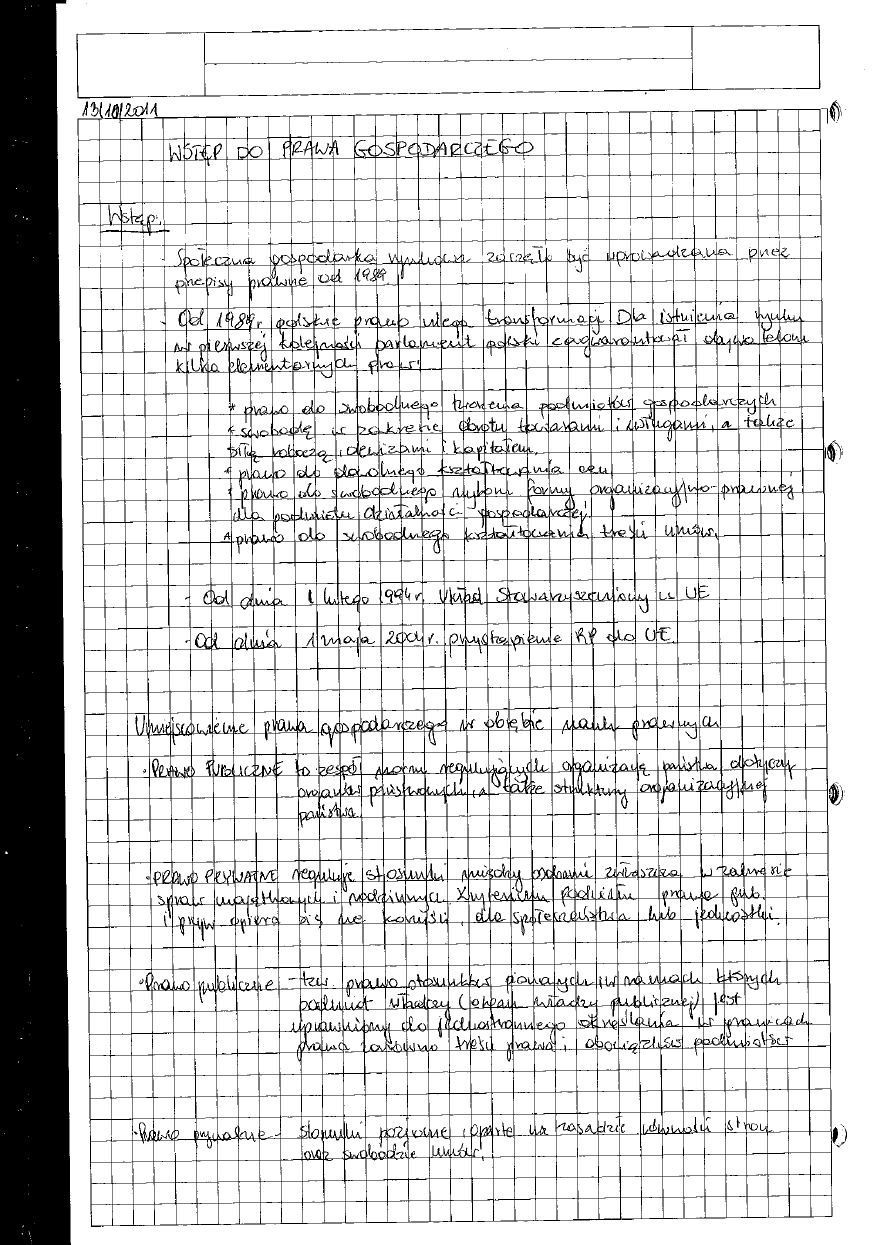 13/10/2011
WSTĘP DO PRAWA GOSPODARCZEGO
Wstęp.
- Społeczna gospodarka rynkowa zaczęła być wprowadzana przez
przepisy prawne od 1989
- Od 1989r. polskie prawo ulega transformacji Dla istnienia rynku
w pierwszej kolejności parlament polski zagwarantował obywatelom
kilka elementarnych praw:
* prawo do swobodnego tworzenia podmiotów gospodarczych
* swobodę w zakresie obrotu towarami i usługami, a także
siłą roboczą, dewizami i kapitałem.
* prawo do dowolnego kształtowania cen
* prawo do swobodnego wyboru formy organizacyjno-prawnej
dla podmiotu działalności gospodarczej
* prawo do swobodnego kształtowania treści umów.
- Od dnia 1 lutego 1994r. Układ Stowarzyszeniowy w UE
- Od dnia 1 maja 2004r. przystąpienie RP do UE
Umiejscowienie prawa gospodarczego w obrębie nauk prawnych
• PRAWO PUBLICZNE to zespół norm regulujących organizację państwa dotyczy
organów państwowych, a także struktury organizacyjnej
państwa.
• PRAWO PRYWATNE reguluje stosunki między osobami zwłaszcza w zakresie
spraw majątkowych i rodzinnych. Kryterium podziału prawa pub.
i pryw. opiera się na korzyści dla społeczeństwa lub jednostki.
• Prawo publiczne - tzw. prawo stosunków w ramach których
podmiot władczy (organ władzy publicznej) jest
uprawniony do jednostronnego określania w granicach
prawa zarówno treści prawa i obowiązków podmiotów
• Prawo prywatne - stosunki poziome oparte na zasadzie równości stron
oraz swobodzie umów.